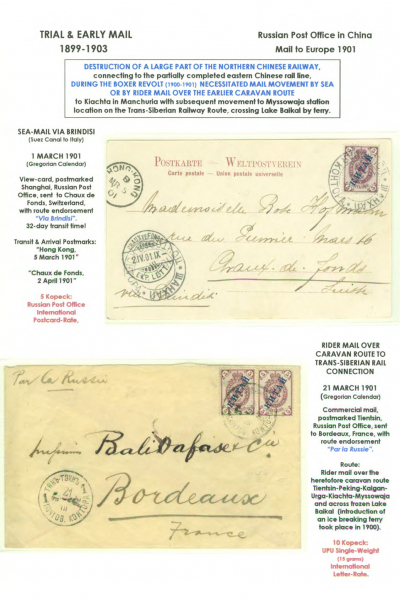 TRIAL & EARLY MAIL
1899-1903
Russian Post Office in China
Mail to Europe 1901
DESTRUCTION OF A LARGE PART OF THE NORTHERN CHINESE RAILWAY,
connecting to the partially completed eastern Chinese rail line,
DURING THE BOXER REVOLT (1900-1901) NECESSITATED MAIL MOVEMENT BY SEA
OR BY RIDER MAIL OVER THE EARLIER CARAVAN ROUTE
to Kiachta in Manchuria with subsequent movement to Myssowaja station
location on the Trans-Siberian Railway Route, crossing Lake Baikal by ferry.
SEA-MAIL VIA BRINDISI
(Suez Canal to Italy)
1 MARCH 1901
(Gregorian Calendar)
View-card, postmarked
Shanghai, Russian Post
Office, sent to Chaux de
Fonds, Switzerland,
with route endorsement
"Via Brindisi".
32-day transit time!
Transit & Arrival Postmarks:
"Hong Kong,
5 March 1901"
"Chaux de Fonds,
2 April 1901"
5 Kopeck:
Russian Post Office
International
Postcard-Rate.
POSTKARTE – WELTPOSTVEREIN
Carte postale – Union postale universelle
HONG-KONG
Mademoiselle
rue du Premier Mars 16
Chaux-de-fonds
Suisse
via Brindisi
2.IV.01.IX
КИТАЙ
RIDER MAIL OVER
CARAVAN ROUTE TO
TRANS-SIBERIAN RAIL
CONNECTION
21 MARCH 1901
(Gregorian Calendar)
Commercial mail,
postmarked Tientsin,
Russian Post Office, sent
to Bordeaux, France, with
route endorsement
"Par la Russie".
Route:
Rider mail over the
heretofore caravan route
Tientsin-Peking-Kalgan-
Urga-Kiachta-Myssowaja
and across frozen Lake
Baikal (introduction of
an ice breaking ferry
took place in 1900).
10 Kopeck:
UPU Single-Weight
(15 grams)
International
Letter-Rate.
Par la Russie
КИТАЙ КИТАЙ
Bordeaux
France